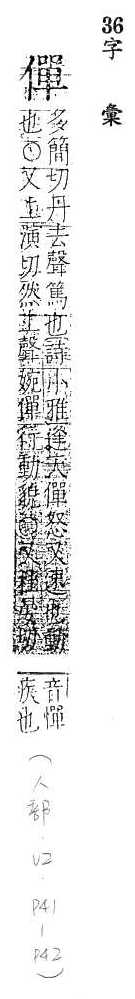 36
字彙
僤
多簡切丹去聲篤也詩小雅逢天僤怒又速也動
也〇又上演切然上聲婉僤行動貌〇又
音憚
疾也
(人部·V2·P41-P42)